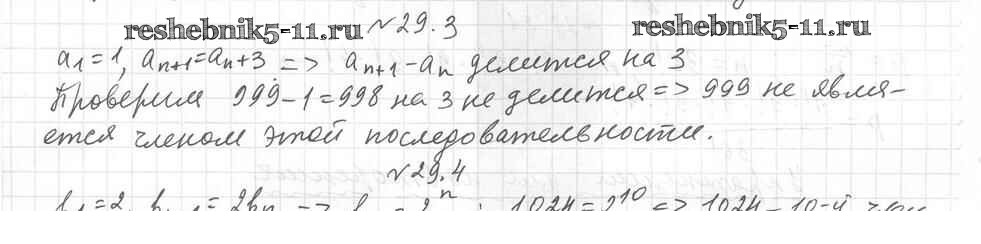 reshebnik5-11.ru №29.3 reshebnik5-11.ru
a₁=1, aₙ₊₁=aₙ+3 => aₙ₊₁-aₙ делится на 3
Проверим 999-1=998 на 3 не делится => 999 не явля-
ется членом этой последовательности.
№29.4